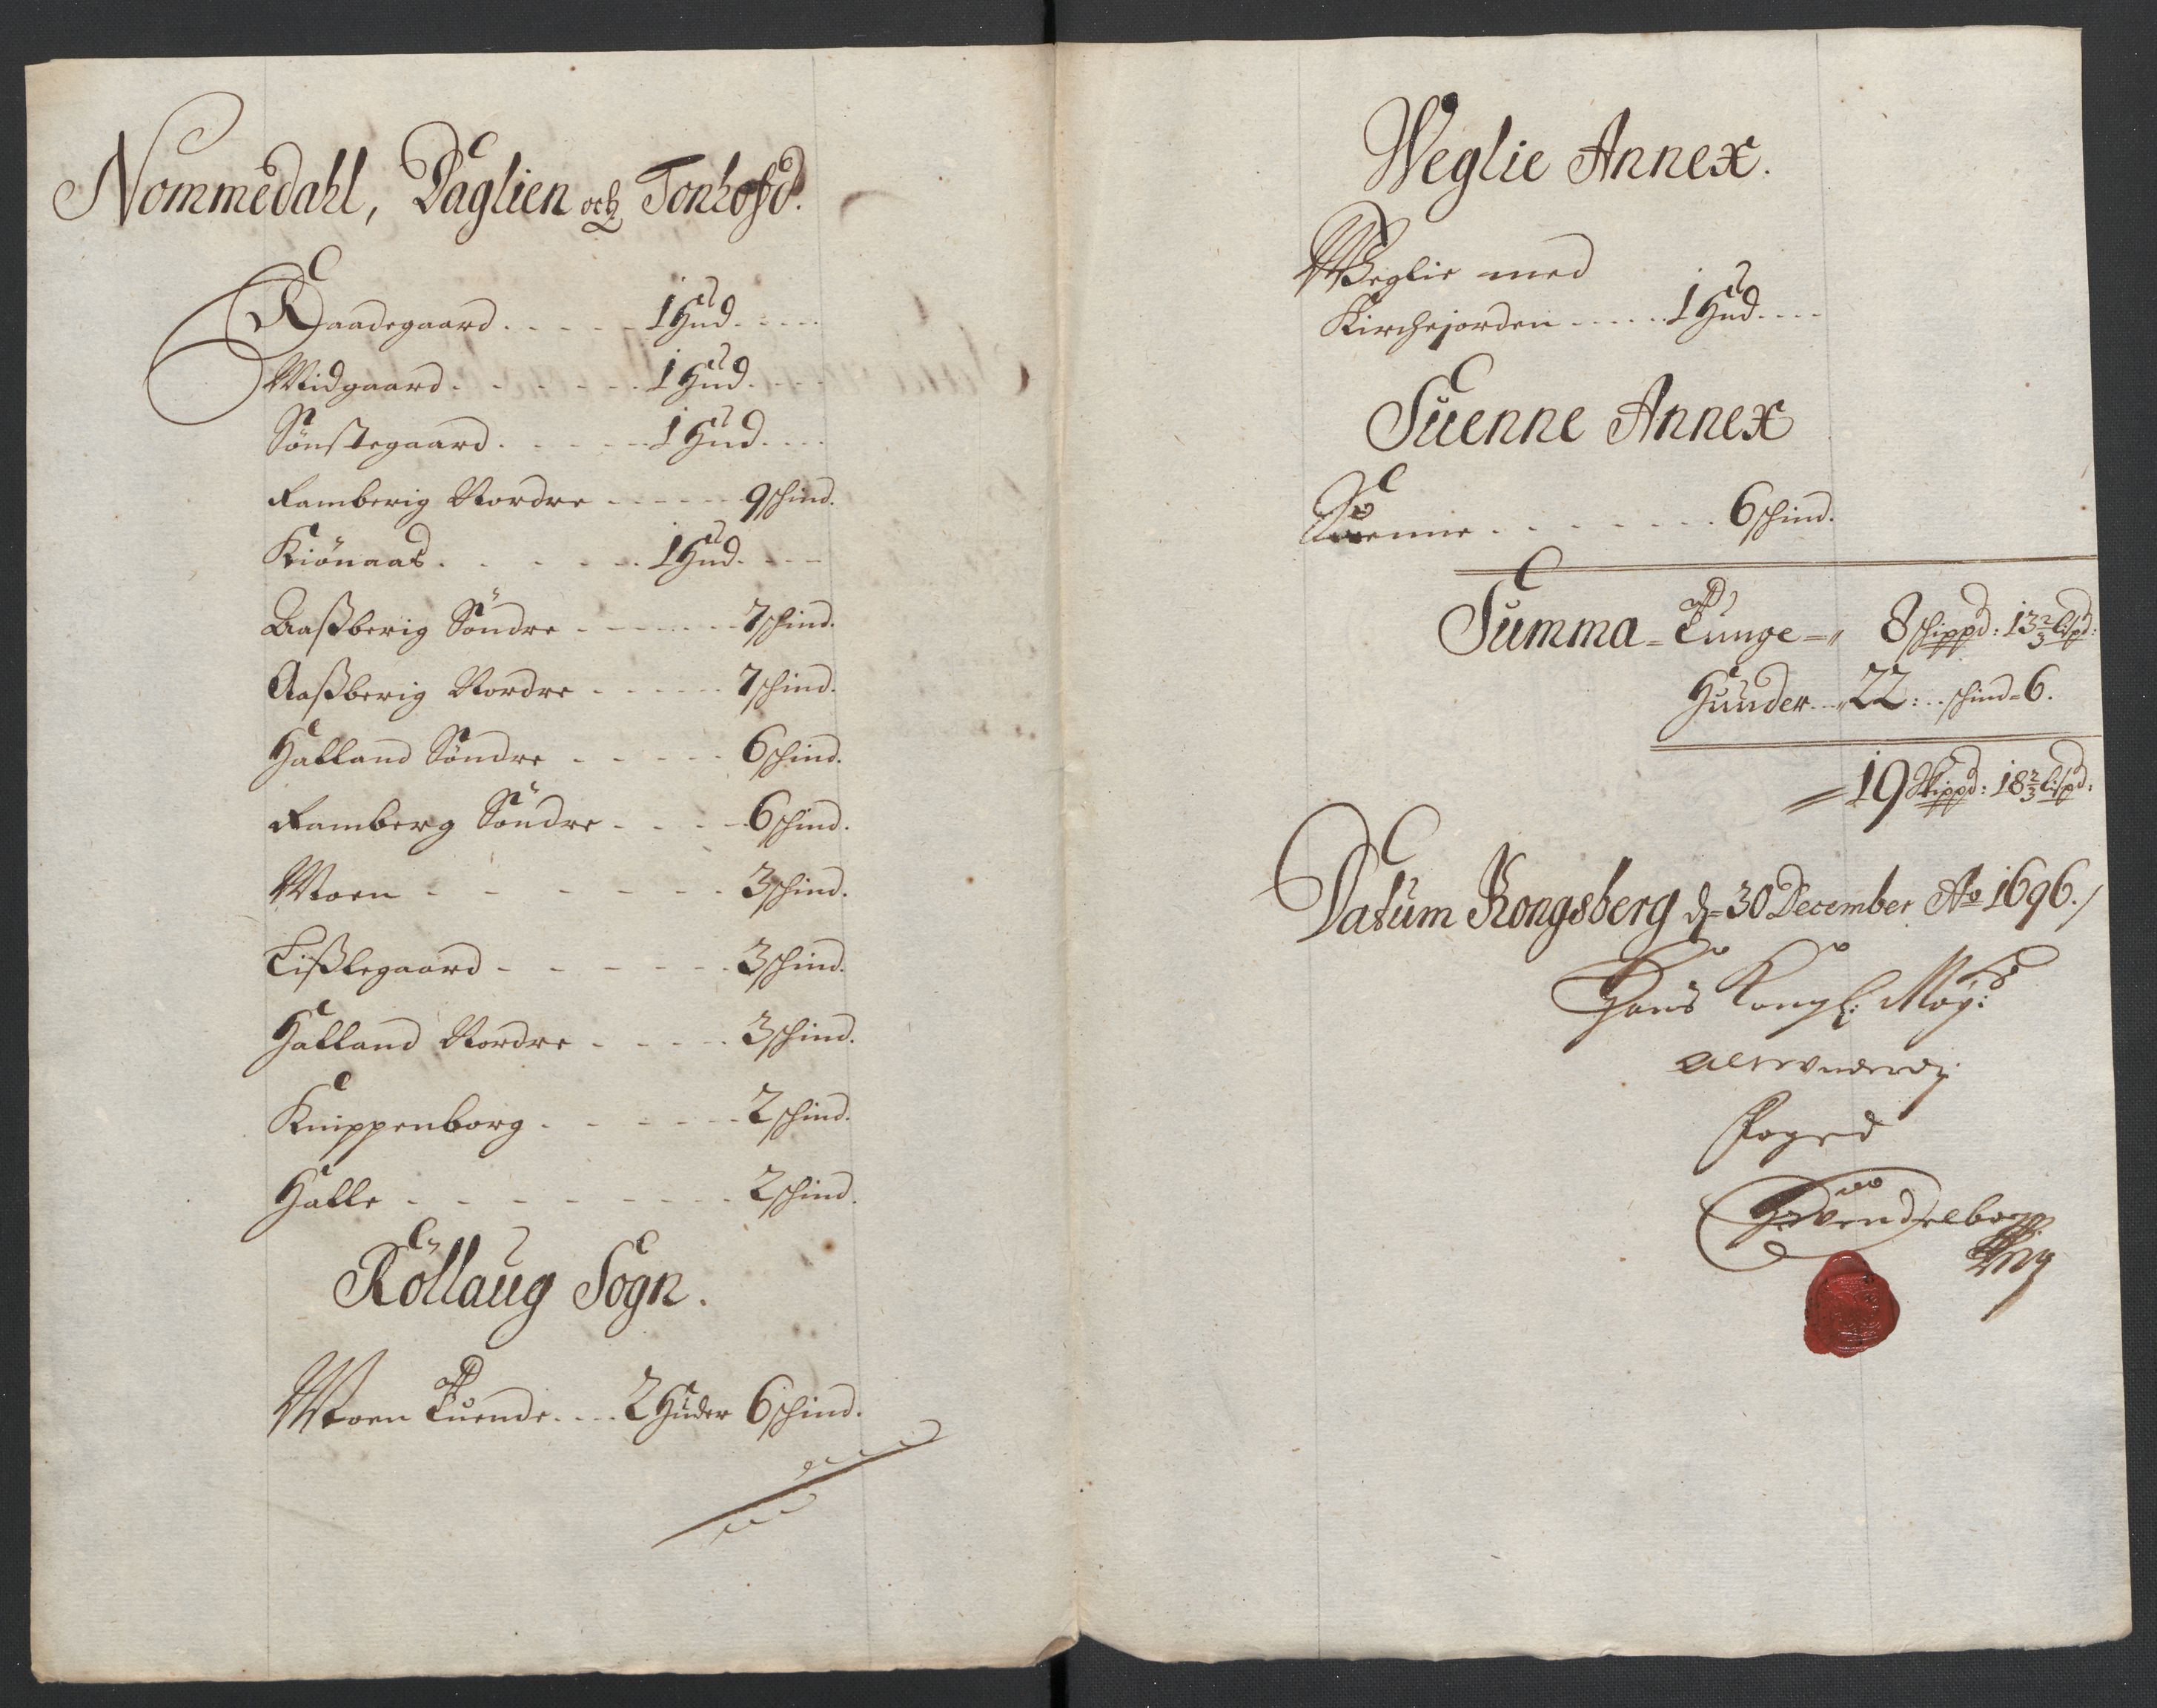 Nommedahl, Daglien och Tonhofd.
Raadegaard. . . . . 1 Hud. . . . .
Midgaard. . . . . . 1 Hud. . . .
Sønstegaard. . . . . 1 Hud. . . .
Ramberig Nordre . . . . . . 9 schind.
Kiönaas. . . . . . 1 Hud. . . .
Aaßberig Söndre . . . . . . 7 schind.
Aaßberig Nordre . . . . . . 7 schind.
Halland Søndre . . . . . 6 schind.
Ramberg Söndre . . . . 6 schind.
Moen . . . . . . . 3 schind.
Tißlegaard . . . . . . 3 schind.
Halland Nordre . . . . . 3 schind.
Knippenborg . . . . . . 2 schind.
Halle . . . . . . . . 2 schind.
Röllaug Sogn.
Moen Tuende. . . . 2 Huder 6 schind.
Weglie Annex.
Weglie med
Kirchejorden . . . . . 1 Hud. . . .
Suenne Annex
Suenne . . . . . . . . 6 schind.
Summa = Tunge = „ 8 schippd: 13 2/3 lispd:
Huuder . . „ 22: . . schind = 6.
= 19 Skippd: 18 2/3 lispd:
Datum Kongsberg d= 30 December Ao 1696./
Hans Kongl: May:
allerunderd:
Foged